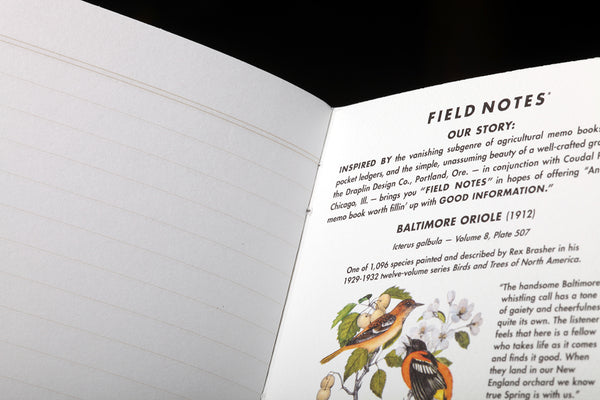 FIELD NOTES
OUR STORY:
INSPIRED BY the vanishing subgenre of agricultural memo books
pocket ledgers, and the simple, unassuming beauty of a well-crafted
the Draplin Design Co., Portland, Ore. — in conjunction with Coudal
Chicago, Ill. — brings you "FIELD NOTES" in hopes of offering "An
memo book worth fillin' up with GOOD INFORMATION."
BALTIMORE ORIOLE (1912)
Icterus galbula — Volume 8, Plate 507
One of 1,096 species painted and described by Rex Brasher in his
1929-1932 twelve-volume series Birds and Trees of North America.
"The handsome Baltimore
whistling call has a tone
of gaiety and cheerfulness
quite its own. The listener
feels that here is a fellow
who takes life as it comes
and finds it good. When
they land in our New
England orchard we know
true Spring is with us."